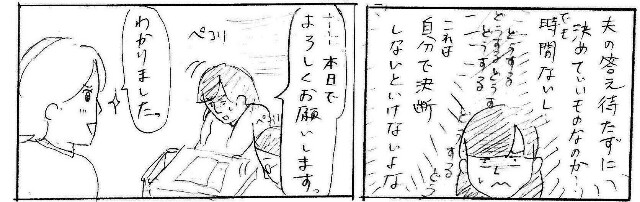 夫の答え待たずに
決めていいものなのか…
でも
時間ないし
どうする
どうする
どうするどうす
どうする
これは
自分で決断
しないといけないよな
する
どう
……本日で
よろしくお願いします。
ぺこり
わかりました。